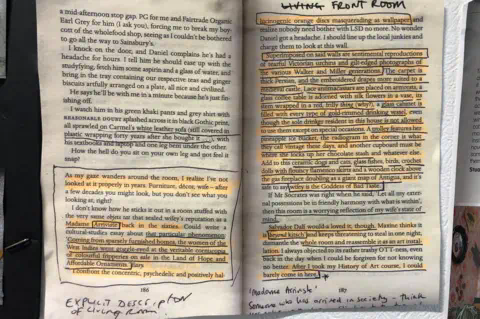 a mid-afternoon stop gap. PG for me and Fairtrade Organic
Earl Grey for him (I ask you), forcing me to break my boy-
cott of the wholefood shop, seeing as I couldn't be bothered
to go all the way to Sainsbury's.
I knock on the door, and Daniel complains he's had a
headache for hours. I tell him he should ease up with the
studying, fetch him some aspirins and a glass of water, and
bring in the tray containing our respective teas and ginger
biscuits artfully arranged on a plate, all nice and civilised.
He says he'll be with me in a minute because he's just fin-
ishing off.
I watch him in his green khaki pants and grey shirt with
REASONABLE DOUBT splashed across it in black Gothic print,
all sprawled on Carmel's white leather sofa (still covered in
plastic wrapping forty years after she bought it
with
his textbooks and laptop and one leg bent under the other.
How the hell do you sit on your own leg and not feel it
snap?
As my gaze wanders around the room, I realise I've not
looked at it properly in years. Furniture, décor, wife – after
a few decades you might look, but you don't see what you
looking at, right?
I don't know how she sticks it out in a room stuffed with
the very same objets that sealed wifey's reputation as a
Madame Arriviste back in the sixties. Could write a
cultural-studies essay about that particular phenomenon:
'Coming from sparsely furnished homes, the women of the
West Indies went
in the veritable cornucopia
of colourful fripperies on sale in the Land of Hope and
Affordable Ornaments'
I confront the concentric, psychedelic and positively hal-
186
EXPLICIT DESCRIPTION
of living Room.
LIVING FRONT ROOM
lucinogenic orange discs masquerading as wallpaper, and
realise nobody need bother with LSD no more. No wonder
Daniel got a headache. I should line up the local junkies and
charge them to look at this wall.
Superimposed on said walls are sentimental reproductions
of tearful Victorian urchins and gilt-edged photographs of
the various Walker and Miller generations. The carpet is
Persian, and the embroidered drapes more suited to a
medieval castle. Lace antimacassars are placed on armrests, a
glass coffee table is adorned with silk flowers in a vase, its
stem wrapped in a red, frilly thing (why?), a glass cabinet is
filled with every type of gold-rimmed drinking vessel, even
though the sole drinker resident in this house is not allowed
to use them except on special occasions. A trolley features her
pineapple ice bucket, the radiogram in the corner is what
they call vintage these days, and another cupboard must be
where she locks up her chocolate stash and whatever else.
Add to this ceramic dogs and cats, glass fishes, birds, crochet
dolls with flouncy flamenco skirts and a wooden clock above
the gas fireplace doubling as a giant map of Antigua, and it's
safe to say wifey is the Goddess of Bad Taste.
If Mr Socrates was right when he said, 'Let all my exter-
nal possessions be in friendly harmony with what is within',
then this room is a worrying reflection of my wife's state of
mind.
Salvador Dalí would a loved it, though. Maxine thinks it
is beyond kitsch and keeps threatening to steal in one night,
dismantle the whole room and reassemble it as an art instal-
lation. I always objected to its rather trashy OTT-ness, even
back in the day when I could be forgiven for not knowing
no better. After I took my History of Art course, I could
barely come in here.
187
'Madame Arriviste'
Someone who has arrived in society – think